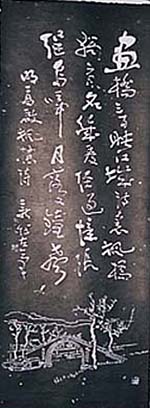 畫橋三百映江城詩裏楓橋
獨有名幾度經過憶張
繼烏啼月落又鐘聲
明高啟楓橋詩